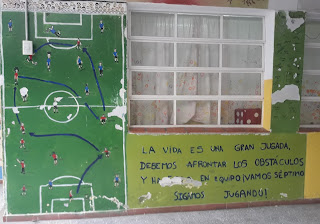 LA VIDA ES UNA GRAN JUGADA,
DEBEMOS AFRONTAR LOS OBSTÁCULOS
Y EN EQUIPO ¡VAMOS SÉPTIMO
SIGAMOS JUGANDO!